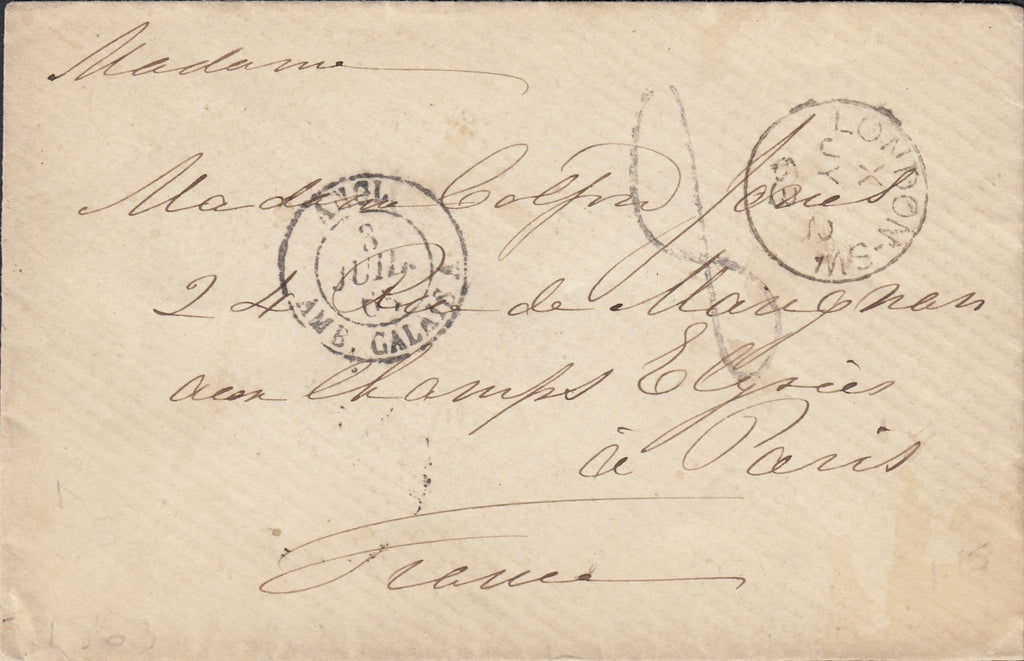 Madame
Madame Colfor Jones
24 Rue de Marignan
aux Champs Elysées
à Paris
France
8
LONDON-SW
X
JY 2
ANGL.
3
JUIL.
AMB. CALAIS